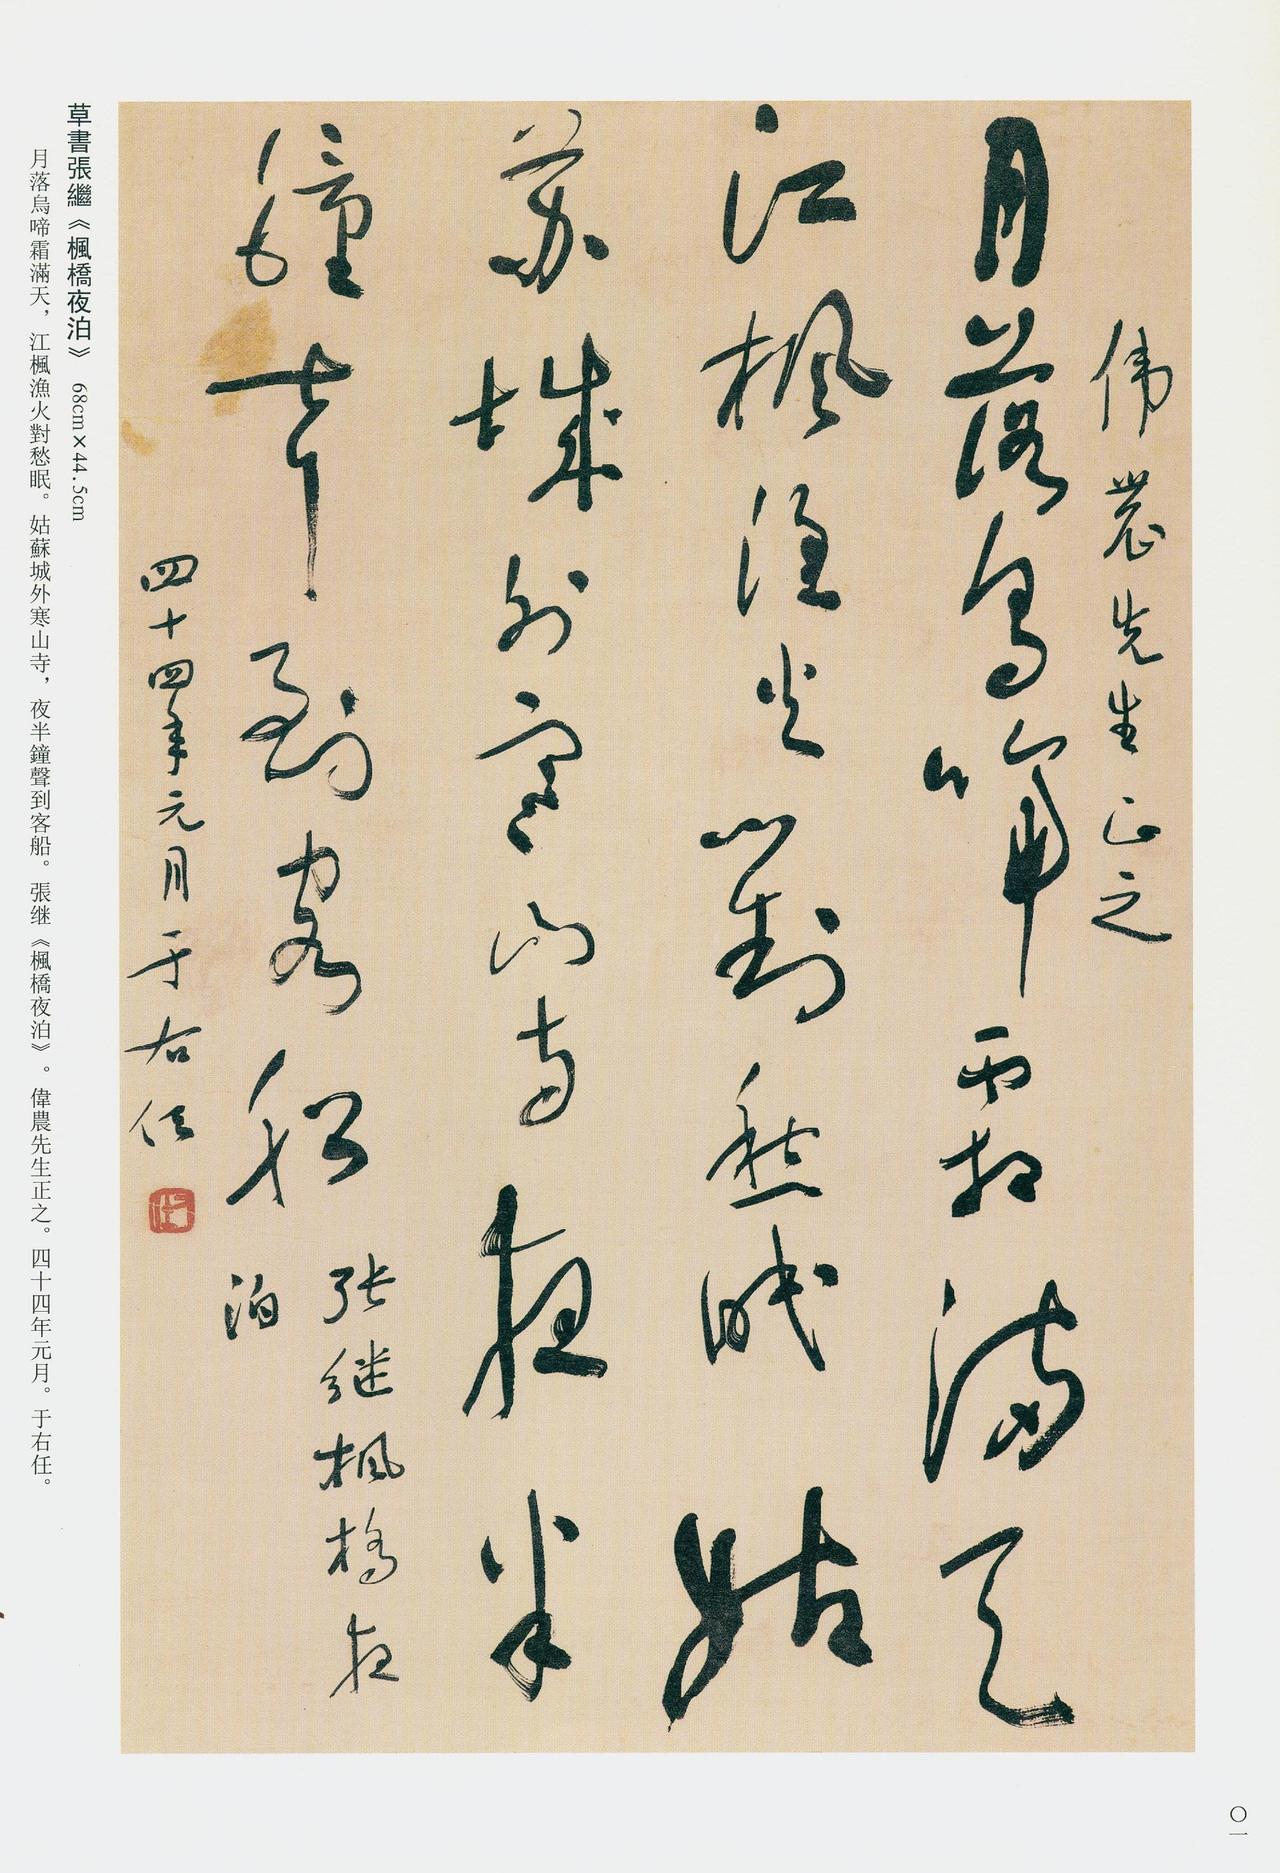 偉農先生正之
月落烏啼霜滿天
江楓漁火對愁眠姑
蘇城外寒山寺夜半
鐘聲到客船
張继楓橋夜
泊
四十四年元月于右任
草書張繼《楓橋夜泊》 68cm×44.5cm
月落烏啼霜滿天，江楓漁火對愁眠。姑蘇城外寒山寺，夜半鐘聲到客船。張继《楓橋夜泊》。偉農先生正之。四十四年元月。于右任。
〇一